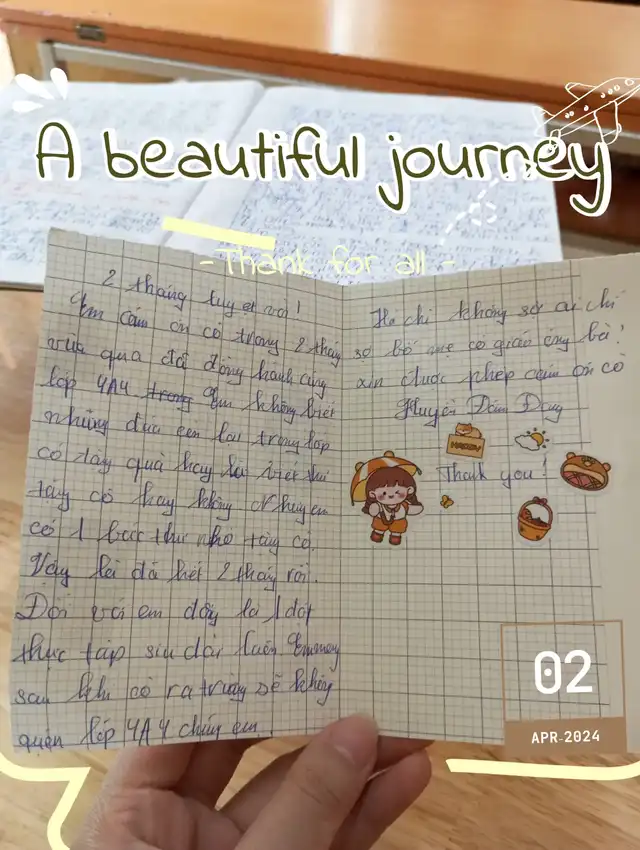 A beautiful journey
- Thank for all -
2 tháng tuyệt vời!
Em cảm ơn cô trong 2 tháng
vừa qua đã đồng hành cùng
lớp 4A4 trong Em không biết
những đứa em lại trong lớp
có tặng quà hay là viết thư
tặng cô hay không Nhưng em
có 1 bức thư nhỏ tặng cô.
Vậy là đã hết 2 tháng rồi.
Đối với em đây là 1 đợt
thực tập siu dài luôn Em mong
sau khi cô ra trường sẽ không
quên lớp 4A4 chúng em.
không sợ ai chỉ
sợ bố mẹ cô giáo ông bà!
xin được phép cảm ơn cô
Huyền
Thank you!
02
APR-2024